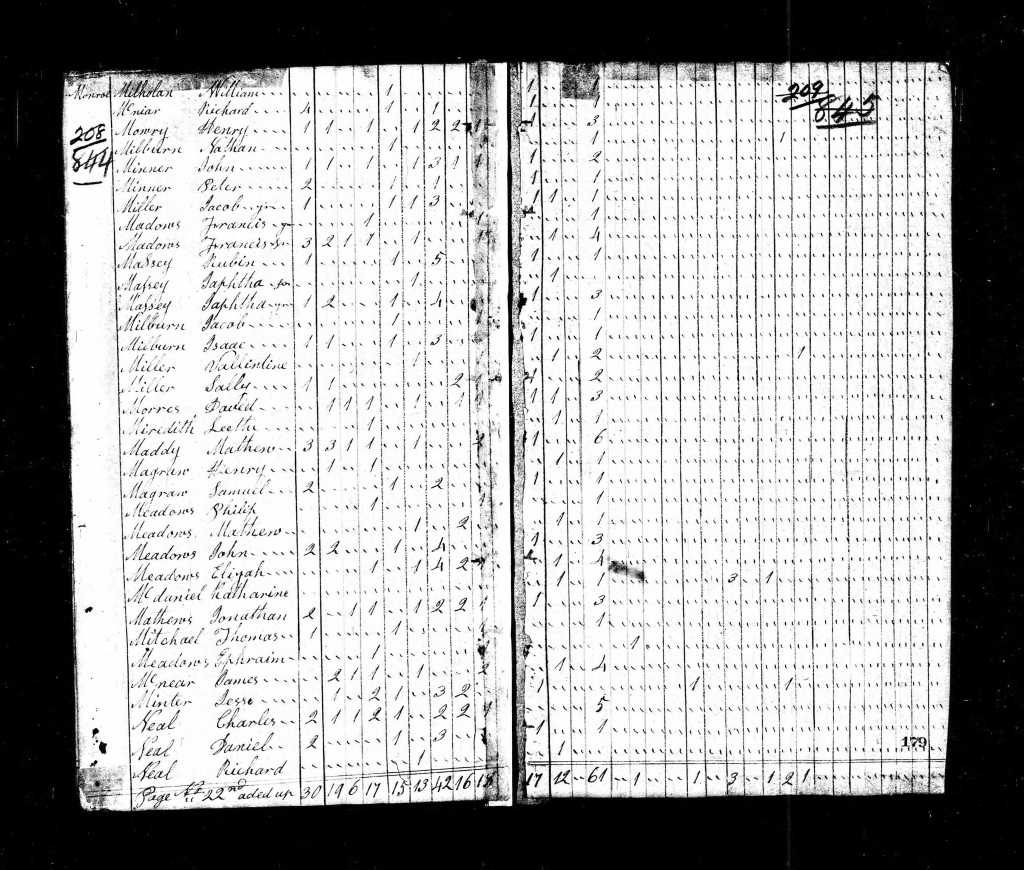 Monroe Milholan William 1 1 1
McNiar Richard 4 1 1 1 1
208 Mowry Henry 1 1 1 1 2 2 3
844 Milburn Nathan 1 1 1
Minner John 1 1 1 1 3 1 1 1 2
Minner Peter 2 1 1 1 1
Miller Jacob jr 1 1 1 3 1 1 1
Madows Francis jr 1 1 1
Madows Francis Sr 3 2 1 1 1 1 4
Massey Rubin 1 1 5 1 1
Massey Japhtha Sr 1 1
Massey Japhtha jr 1 2 1 4 1 3
Milburn Jacob 1 1
Milburn Isaac 1 1 1 3 1 1
Miller Vallintine 1 1 2 1
Miller Sally 1 1 2 1 2
Morres David 1 1 1 1 1 1 1 3
Meridith Leethe 1 1 1
Maddy Mathew 3 3 1 1 1 1 6
Magraw Henry 1 1 1 1
Magraw Samuel 2 1 2 1 1
Meadows Philip 1 1 1
Meadows Mathew 1 2 1 1
Meadows John 2 2 1 4 1 3
Meadows Elijah 1 1 4 2 1 4
Mcdaniel Katharine 1 3 1
Mathews Jonathan 2 1 1 1 2 2 1 1 3
Mitchael Thomas 1 1 1
Meadows Ephraim 1 1
McNear James 2 1 1 1 2 1 4
Minter Jesse 1 2 1 3 2 1 1 1
Neal Charles 2 1 1 2 1 2 2 1 5
Neal Daniel 2 1 3 1 1
Neal Richard 1 1
Page No 22nd aded up 30 19 6 17 15 13 42 16 18 17 12 61 1 1 3 1 2 1
209
845
179